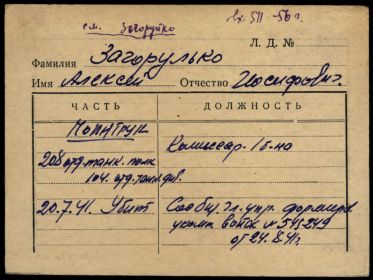 см. Загоруйко
вх 511 - 56 г.
Л. Д. №
Фамилия Загорулько
Имя Алексей Отчество Иосифович.
ЧАСТЬ ДОЛЖНОСТЬ
Политрук
208 отд. танк. полк Комиссар. 1 б-на
104. отд. танк. див.
20.7.41. Убит Сообщ. Гл. упр. формиров.
укомп. войск № 545249
от 24.8.41г